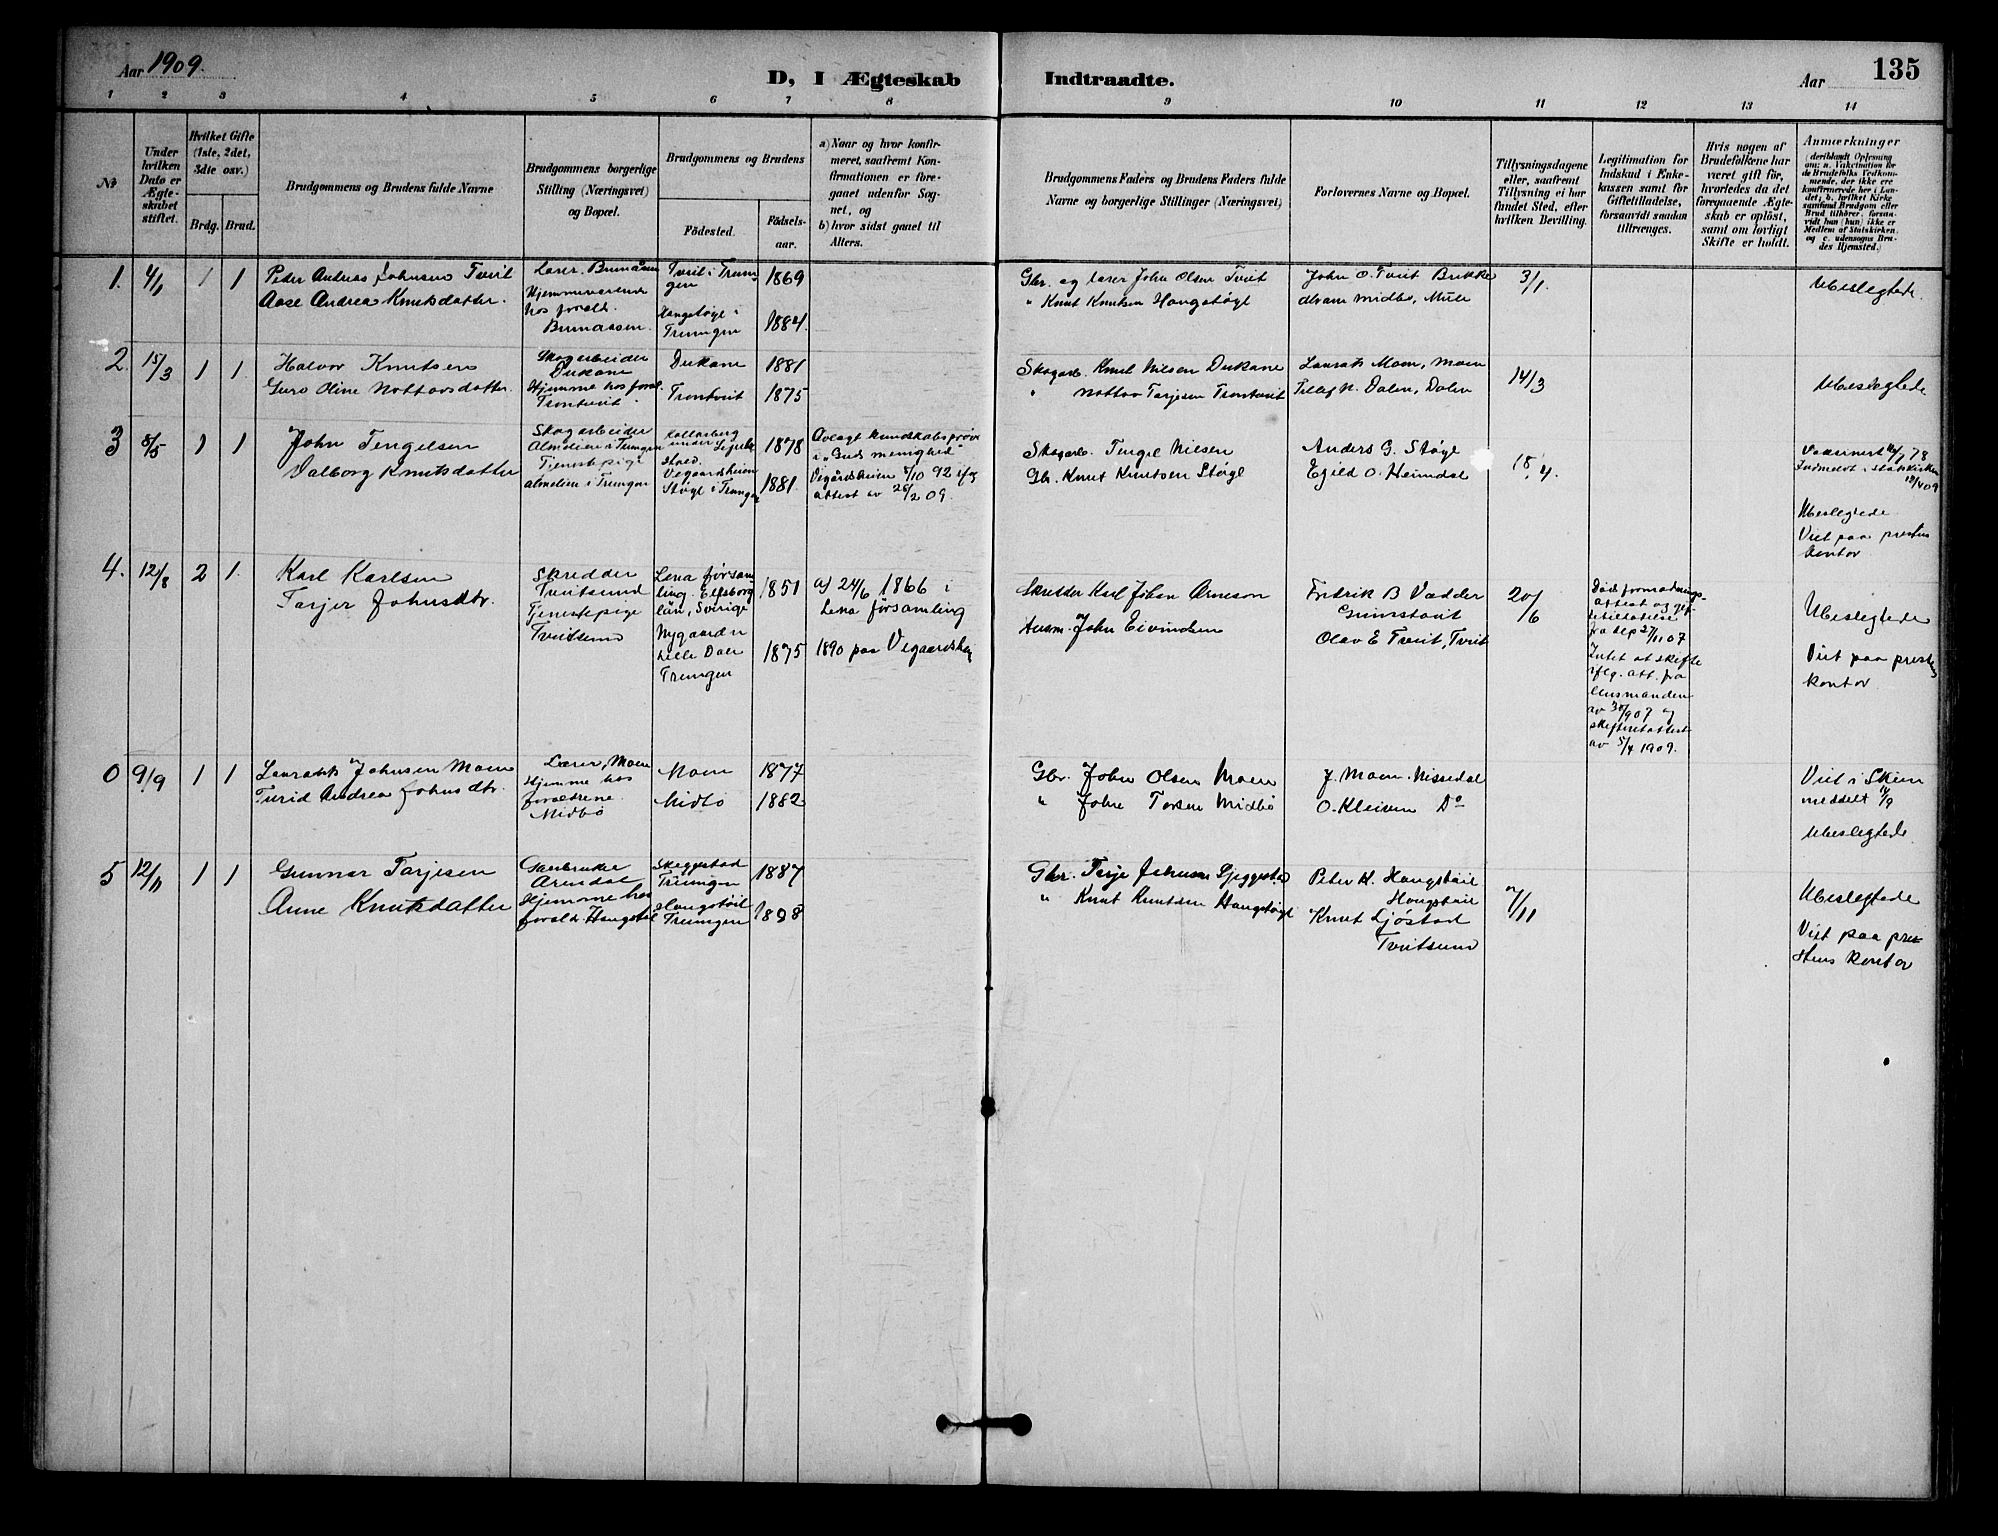 Aar 1909.
D, I Ægteskab Indtraadte.
Aar
135
1 2 3 4 5 6 7 8 9 10 11 12 13 14
No
Under hvilken Dato er Ægteskabet stiftet.
Hvilket Gifte (1ste, 2det, 3die osv.)
Brdg. Brud.
Brudgommens og Brudens fulde Navne
Brudgommens borgerlige Stilling (Næringsvei) og Bopæl.
Brudgommens og Brudens
Fødested.
Fødselsaar.
a) Naar og hvor konfirmeret, saafremt Konfirmationen er foregaaet udenfor Sognet, og
b) hvor sidst gaaet til Alters.
Brudgommens Faders og Brudens Faders fulde Navne og borgerlige Stillinger (Næringsvei)
Forlovernes Navne og Bopæl.
Tillysningsdagene eller, saafremt Tillysning ei har fundet Sted, efter hvilken Bevilling.
Legitimation for Indskud i Enkekassen samt for Giftetilladelse, forsaavidt saadan tiltrænges.
Hvis nogen af Brudefolkene har været gift før, hvorledes da det foregaaende Ægteskab er opløst, samt om lovligt Skifte er holdt.
Anmerkninger
(deriblandt Oplysning om: a. Vakcination for de Brudefolks Vedkommende, der ikke ere konfirmerede her i Landet, b. hvilket Kirkesamfund Brudgom eller Brud tilhører, forsaavidt han (hun) ikke er Medlem af Statskirken, og c. udensogns Brudes Hjemsted.)
1. 4/1 1 1
Peder Andreas Johnsen Tveit
Aase Andrea Knutsdatter.
Lærer. Brunåsen
Hjemmeværende
hos foræld.
Brunaasen.
Tveit i Treungen
Haugstøyl i
Treungen
1869
1884.
Gbr. og lærer John Olsen Tveit
" Knut Knutsen Haugstøyl
John O. Tveit Brekke
midbø, Mule
3/1.
Ubeslegtede.
2. 15/3 1 1
Halvor Knutsen
Guro Oline Nottovsdatter.
Skogarbeider
Dukane
Hjemme hos foræl.
Trontveit.
Dukane
Trontveit
1881
1875
Skogarb. Knut Nilsen Dukane
" Nottov Tarjesen Trontveit
Laurits Moen, Moen
Tellef N. Dalen, Dalen
14/3
Ubeslegtede
3 8/5 1 1
John Tengelsen
Valborg Knutsdatter
Skogarbeider
Almelien i Treungen
Tjenestepige
Almelien i Treungen
under
Vegaardsheien
Støyl i Treungen
1878
1881.
Avlagt kundskabsprøve
i "Guds menighed"
Vegårdsheien 5/10 92 ifg
attest av 26/2 09.
Skogarb. Tengel Nilsen
Gbr. Knut Knutsen Støyl
Anders G. Støyl
Egild O. Heimdal
18/4.
Indmeldt i statskirken
Ubeslegtede
Viet paa prestens
kontor
4. 12/8 2 1.
Karl Karlsen
Tarjer Johnsdtr.
Skredder
Tveitsund
Tjenestepige
Tveitsund
Lena försam
ling. Elfsborg
län, Sverige
Nygaard u
Lille Dale
Treungen
1851
1875
a) 24/6 1866 i
Lena församling
1890 paa Vegaardshei
Skredder Karl Johan Arneson
John Eivindsen
Fredrik B Vedder
Grimstveit
Olav E Tveit, Tveit
20/6
attest og
fra 27/11 07
Intet at skifte
iflg. att. fra
lensmanden
av 30/9 07 og
skifteretsattest
av 5/4 1909.
Ubeslegtede
Viet paa prestens
kontor
0 9/9 1 1
Laurits Johnsen Moen
Turid Andrea Johnsdtr.
Lærer, Moen
Hjemme hos
forældrene.
Midbø
Moen
Midbø
1877
1882
Gbr. John Olsen Moen
" John Torsen Midbø
J. Moen. Nissedal
O. Kleiven Do
Viet i Skien
meddelt 14/9
Ubeslegtede
5 12/11 1 1
Gunnar Tarjesen
Anne Knutsdatter
Gaardbruker
Arendal
Hjemme hos
foræld. Haugstøil
Skeggestad
Treungen
Haugstøil
Treungen
1887
1898
Gbr. Tarje Johnsen Skeggestad
" Knut Knutsen Haugstøyl
Peter K. Haugstøil
Haugstøil
Knut Ljøstad
Tveitsund
7/11
Ubeslegtede
Viet paa pre-
stens kontor